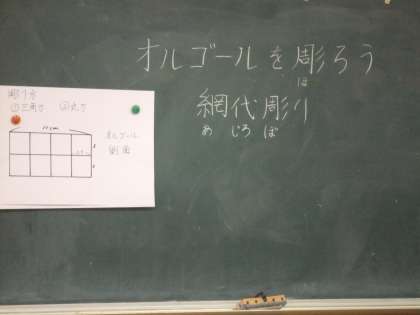 オルゴールを彫ろう
ほ
網代彫り
あ じろ ぼ
彫り方
①三角刀 ②丸刀
オルゴール
側面